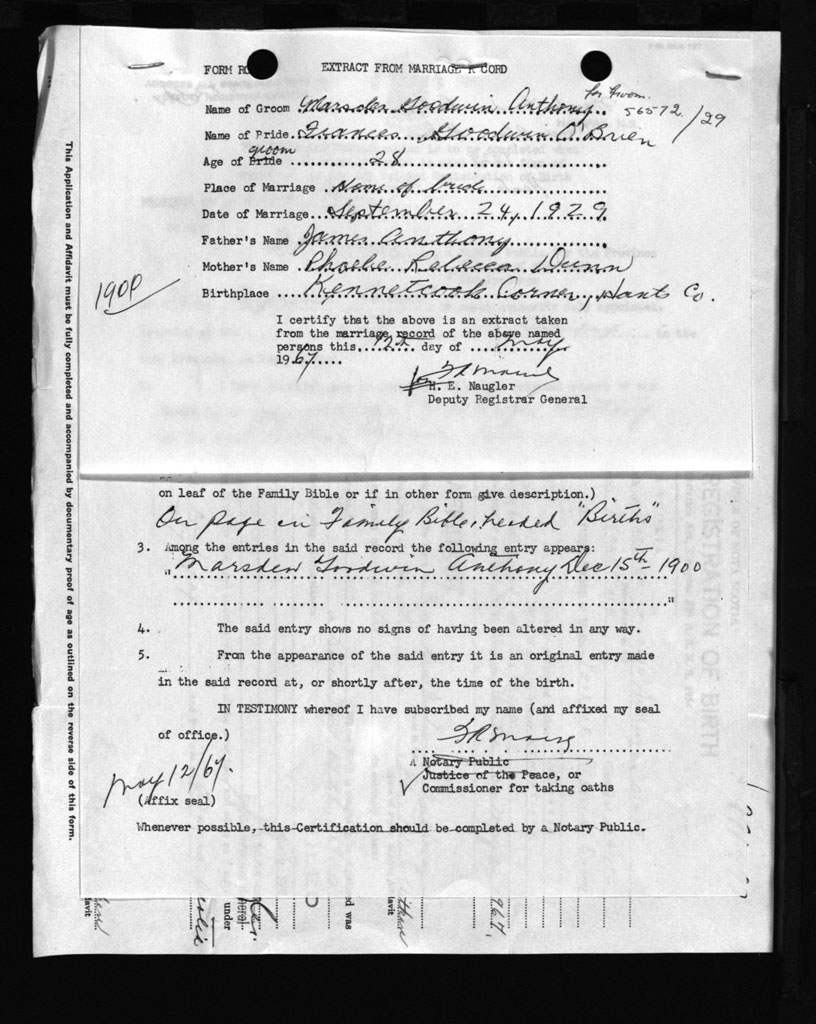 FORM RO EXTRACT FROM MARRIAGE R CORD
for Groom
Name of Groom Marsden Goodwin Anthony 56572/29
Name of Pride Frances Goodwin O'Brien
groom
Age of Bride 28
Place of Marriage Home of bride
Date of Marriage September 24, 1929
Father's Name James Anthony
Mother's Name Phoebe Rebecca Dunn
1900
Birthplace Kennetcook Corner, Hants Co.
I certify that the above is an extract taken
from the marriage record of the above named
persons this 12th day of May
1967
for H. E. Naugler
Deputy Registrar General
on leaf of the Family Bible or if in other form give description.)
On page in Family Bible, headed "Births"
3. Among the entries in the said record the following entry appears:
"Marsden Goodwin Anthony Dec 15th 1900
"
4. The said entry shows no signs of having been altered in any way.
5. From the appearance of the said entry it is an original entry made
in the said record at, or shortly after, the time of the birth.
IN TESTIMONY whereof I have subscribed my name (and affixed my seal
of office.)
A Notary Public
Justice of the Peace, or
May 12/67.
✓ Commissioner for taking oaths
(Affix seal)
Whenever possible, this Certification should be completed by a Notary Public.
This Application and Affidavit must be fully completed and accompanied by documentary proof of age as outlined on the reverse side of this form.
REGISTRATION OF BIRTH
davit
under
d was
davit
967.